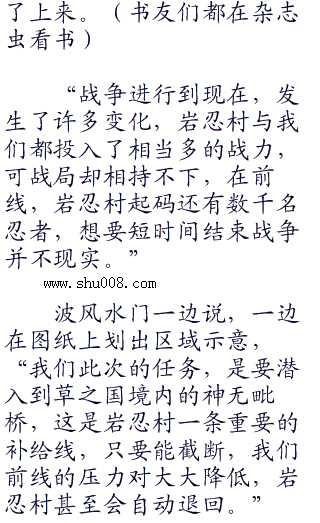 了上来。（书友们都在杂志
虫看书）
“战争进行到现在，发
生了许多变化，岩忍村与我
们都投入了相当多的战力，
可战局却相持不下，在前
线，岩忍村起码还有数千名
忍者，想要短时间结束战争
并不现实。”
www.shu008.com
波风水门一边说，一边
在图纸上划出区域示意，
“我们此次的任务，是要潜
入到草之国境内的神无毗
桥，这是岩忍村一条重要的
补给线，只要能截断，我们
前线的压力对大大降低，岩
忍村甚至会自动退回。”